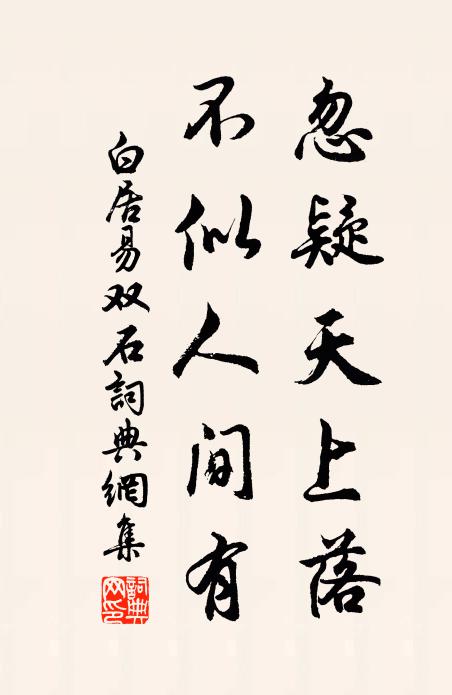 忽疑天上落
不似人间有
白居易双石詞典網集
詞典网印